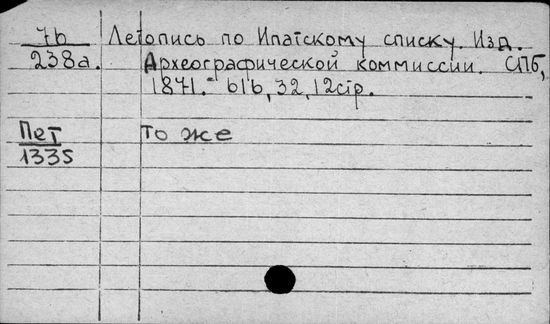 7b Летопись по Ипатскому списку. Изд.
238а. Археографической коммиссии. СПб,
1871.- 616, 32, 12стр.
Пет То же
1335